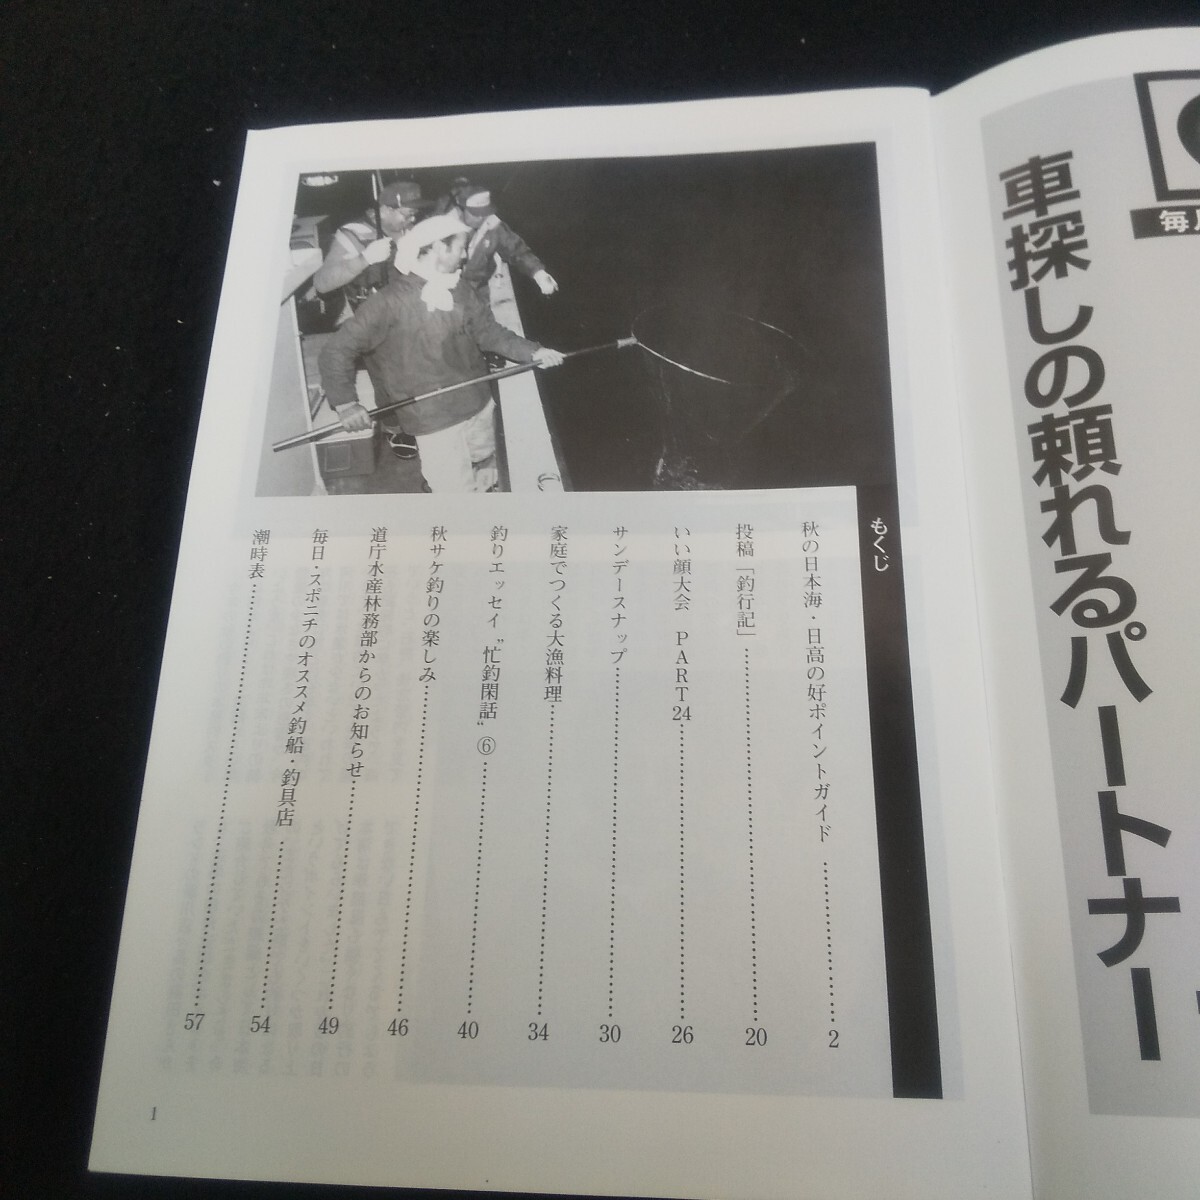 もくじ
秋の日本海・日高の好ポイントガイド……………2
投稿「釣行記」……………20
いい顔大会 PART24……………26
サンデースナップ……………30
家庭でつくる大漁料理……………34
釣りエッセイ〝忙釣閑話〟⑥……………40
秋サケ釣りの楽しみ……………46
道庁水産林務部からのお知らせ……………49
毎日・スポニチのオススメ釣船・釣具店……………54
潮時表……………57
1
毎月
車探しの頼れるパートナー